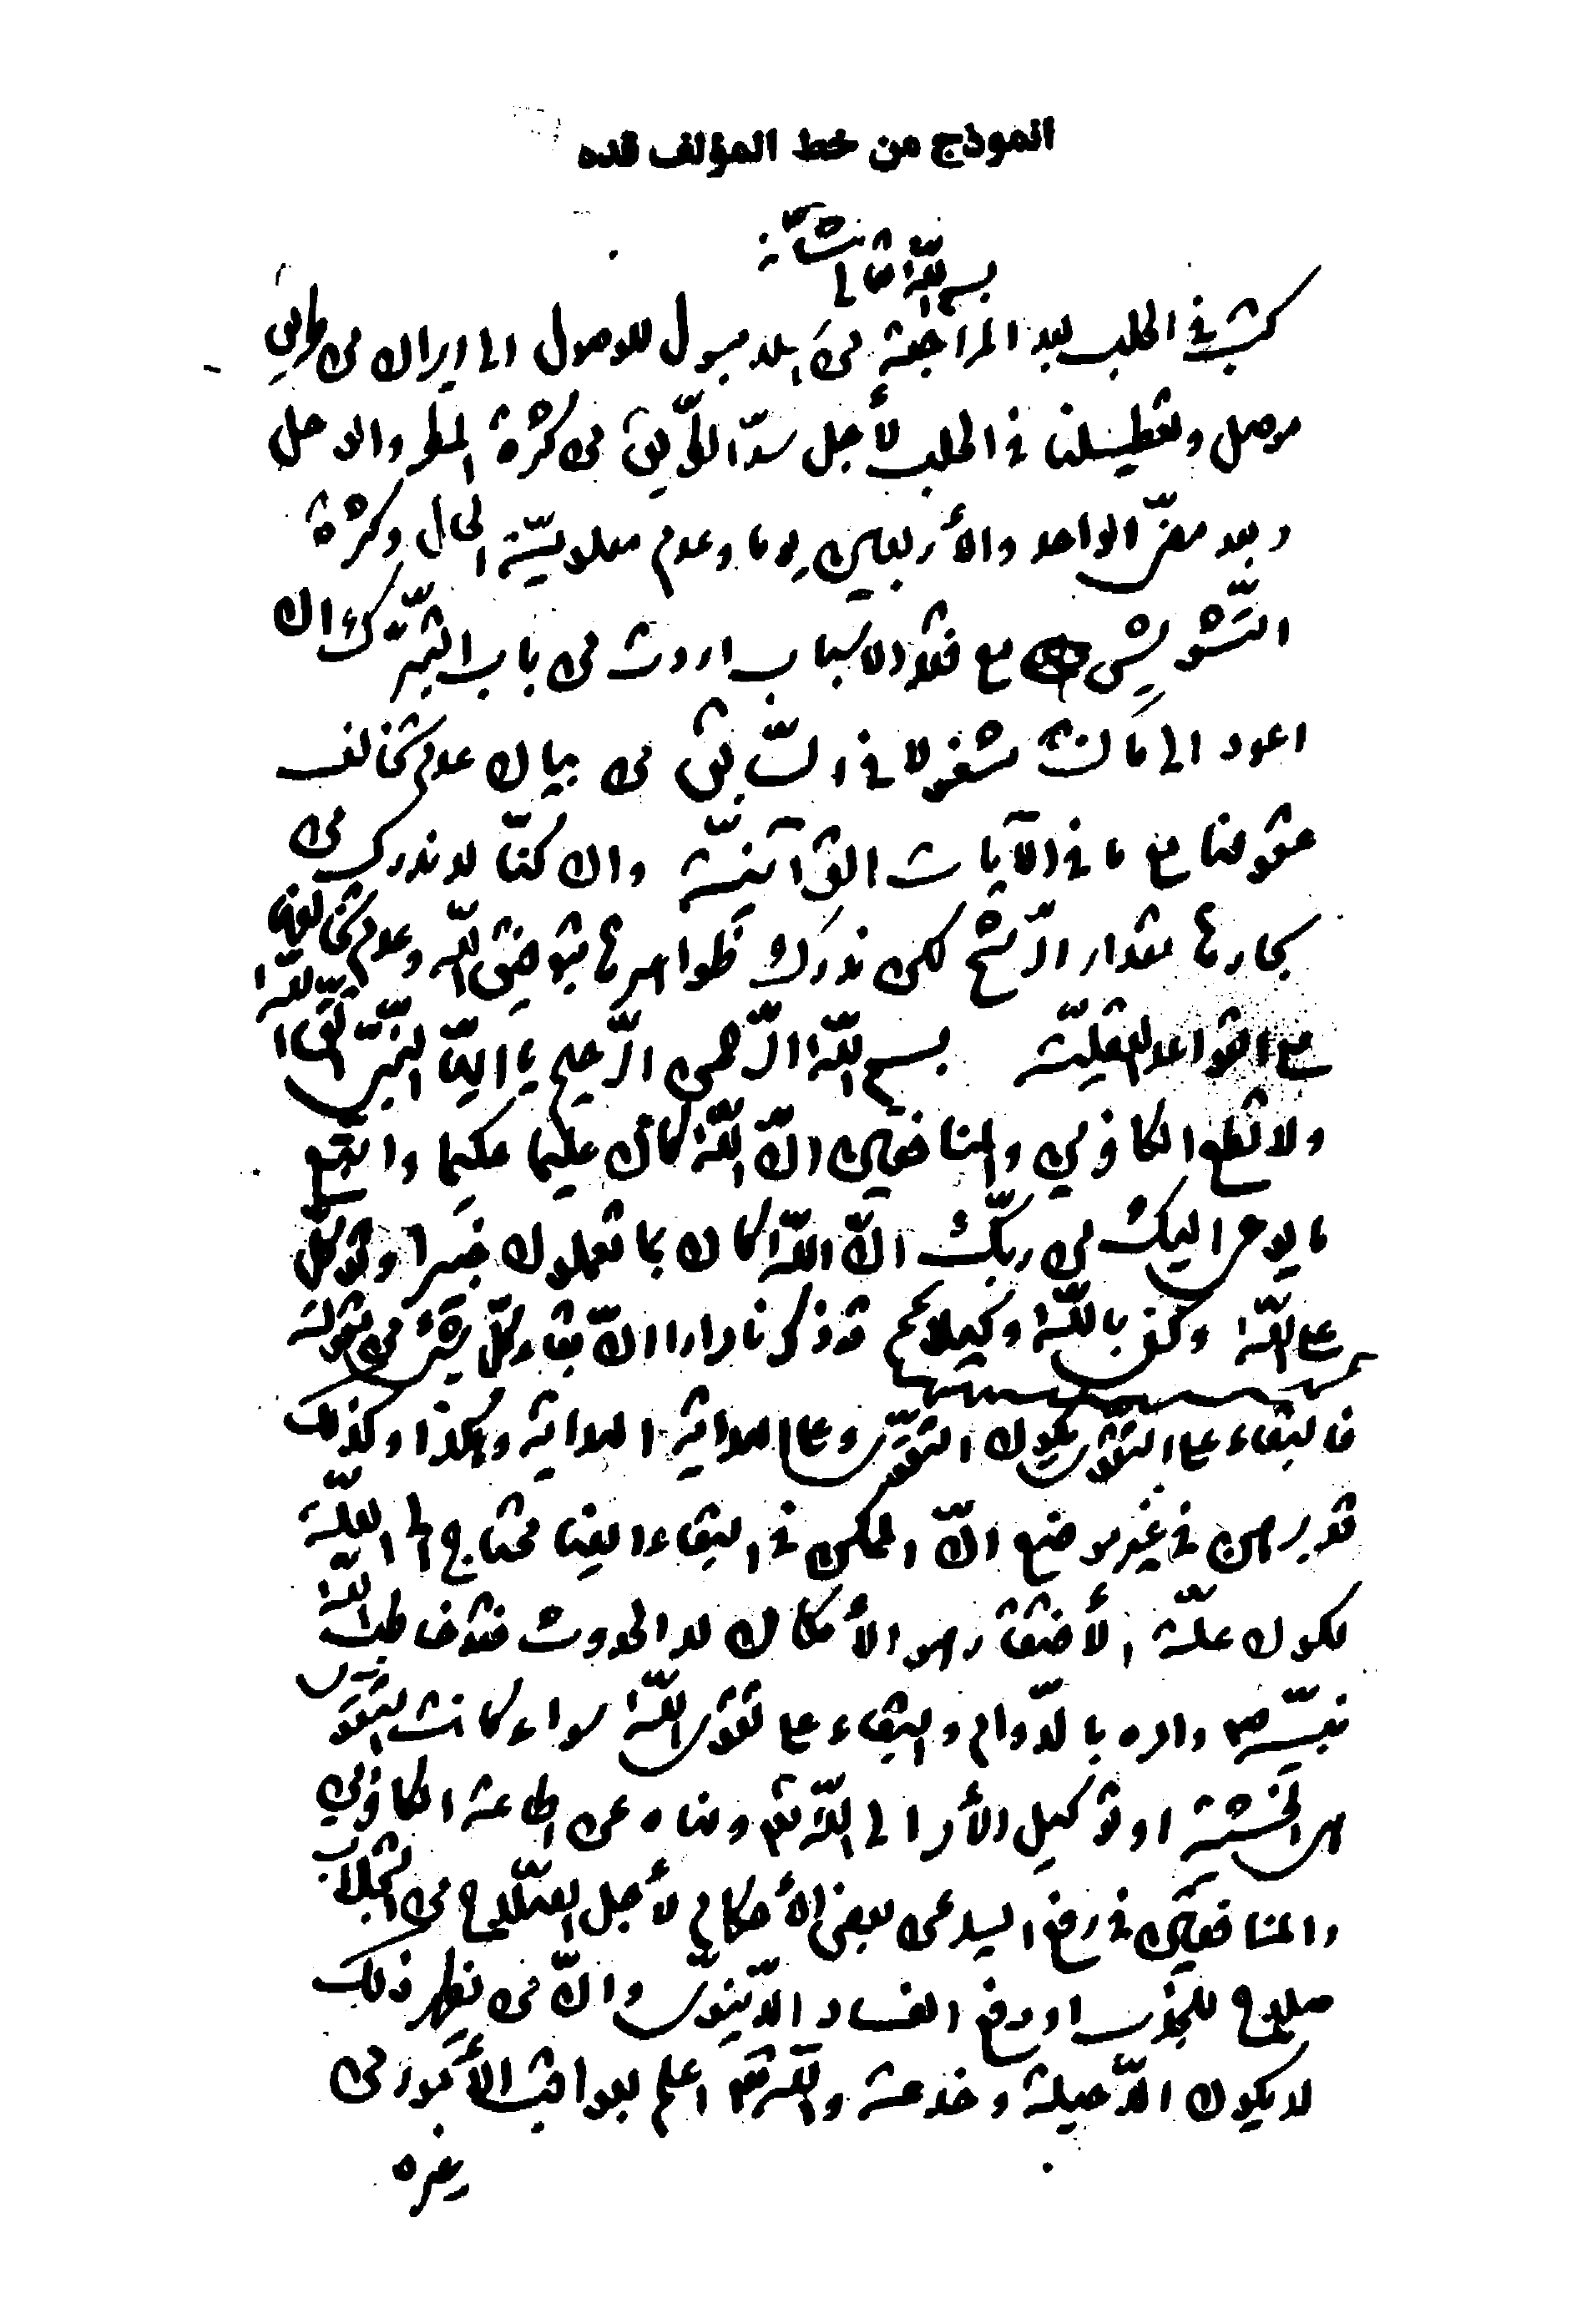 انموذج من خط المؤلف قده
بسم الله تعالى شأنه
كتبت في الحلب بعد المراجعة من اسلامبول للوصول الى ايران من طريق
موصل وتعطيلنا في الحلب لأجل سدّ الطّريق من كثرة المطر والوحل
وبعد مضىّ الواحد والأربعين يوما وعدم معلوميّة الحال وكثرة
التّشويش مع فقد الاسباب اردت من باب التّبرّك ان
اعود الى ما كنت مشغولا في السّابق من بيان عدم تخالف
عقولنا مع ما في الآيات القرآنيّة وان كنّا لا ندرك من
بحارها مقدار الرّشح لكن ندرك ظواهرها بتوفيق اللّه وعدم تخالفها
مع القواعد العقليّة بسم اللّه الرّحمن الرّحيم يا ايّها النّبىّ اتّق اللّه
ولا تطع الكافرين والمنافقين انّ اللّه كان عليما حكيما واتّبع
ما يوحى اليك من ربّك انّ اللّه كان بما تعملون خبيرا وتوكّل
على اللّه وكفى باللّه وكيلا قد ذكرنا مرارا انّ بقاء كلّ شىء من مقولته
فالبقاء على التقوى يكون التقوى وعلى الهداية الهداية وهكذا وكذلك
قد برهن في غير موضع انّ الممكن في البقاء ايضا محتاج الى العلّة
لكون علّة الأفتقار هو الأمكان لا الحدوث فقد خاطب اللّه
نبيّه ص وامره بالدّوام والبقاء على تقوى اللّه سواء كانت التقوى
هى الخشية او توكيل الأمر الى اللّه تع ونهاه عن اطاعة الكافرين
والمنافقين في رفع اليد عن بعض الأحكام لأجل الصّلاح من
صلاح للحزب او دفع الفساد الدّنيوىّ وانّ من نظهر ذلك
لا يكون الاّ حيلة وخدعة واللّه تع اعلم بعواقب الأمور من
غيره